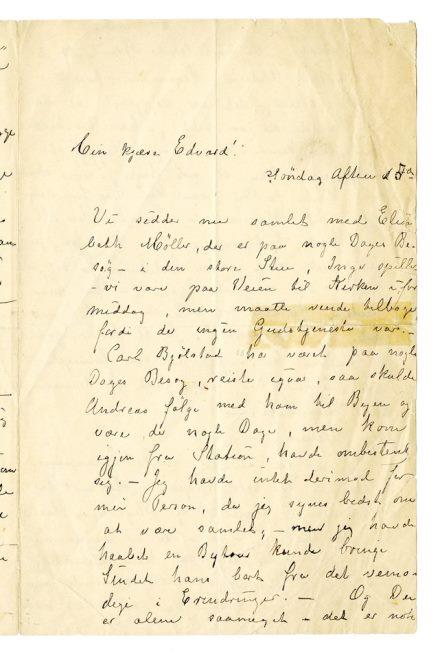 Min kjære Edvard!
Søndag Aften d 5te
Vi sidder nu samlet med Elisa
beth Møller, der er paa nogle Dages Be-
søg – i den store Stue, Inga spiller
– vi vare paa Veien til Kirken i for
middag, men maatte vende tilbage
fordi der ingen Gudstjeneste var. –
Carl Bjølstad har været paa nogle
Dages Besøg, reiste igaar, saa skulde
Andreas følge med ham til Byen og
være der nogle Dage, men kom
igjen fra Station, havde ombestemt
sig. – Jeg havde intet derimod for
min Person, da jeg synes bedst om
at være samlet, – men jeg havde
haabet en Bytour kunde bringe
Sindet hans bort fra det vemo-
dige i Erindringer. – Og Du
er alene saameget – det er nok